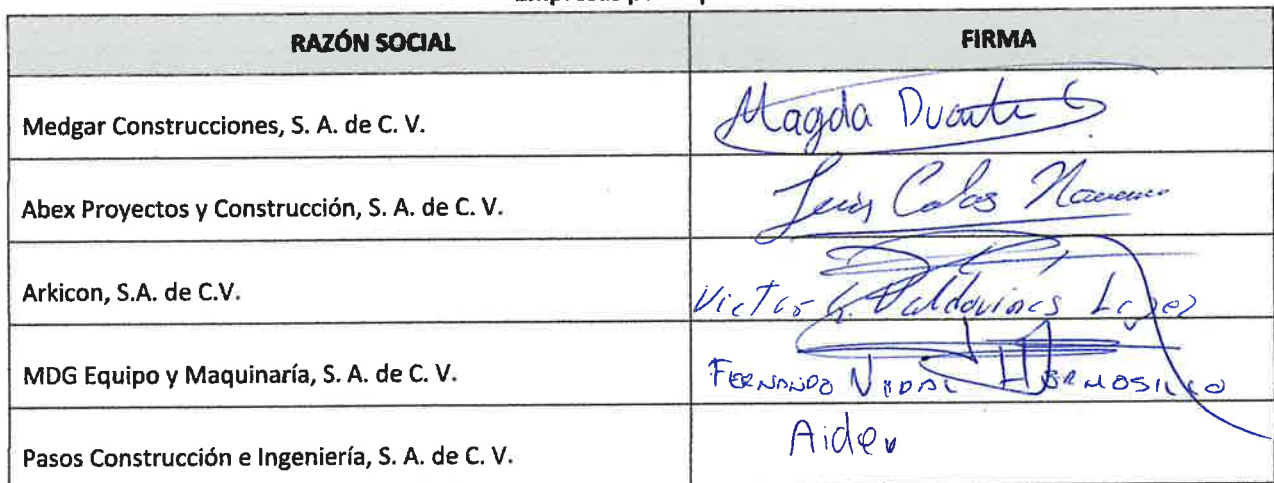 RAZÓN SOCIAL FIRMA
Medgar Construcciones, S. A. de C. V. Magda Duarte
Abex Proyectos y Construcción, S. A. de C. V. Luis
Arkicon, S.A. de C.V. Victor G. Valdovinos Lopez
MDG Equipo y Maquinaría, S. A. de C. V. FERNANDO HERMOSILLO
Pasos Construcción e Ingeniería, S. A. de C. V.